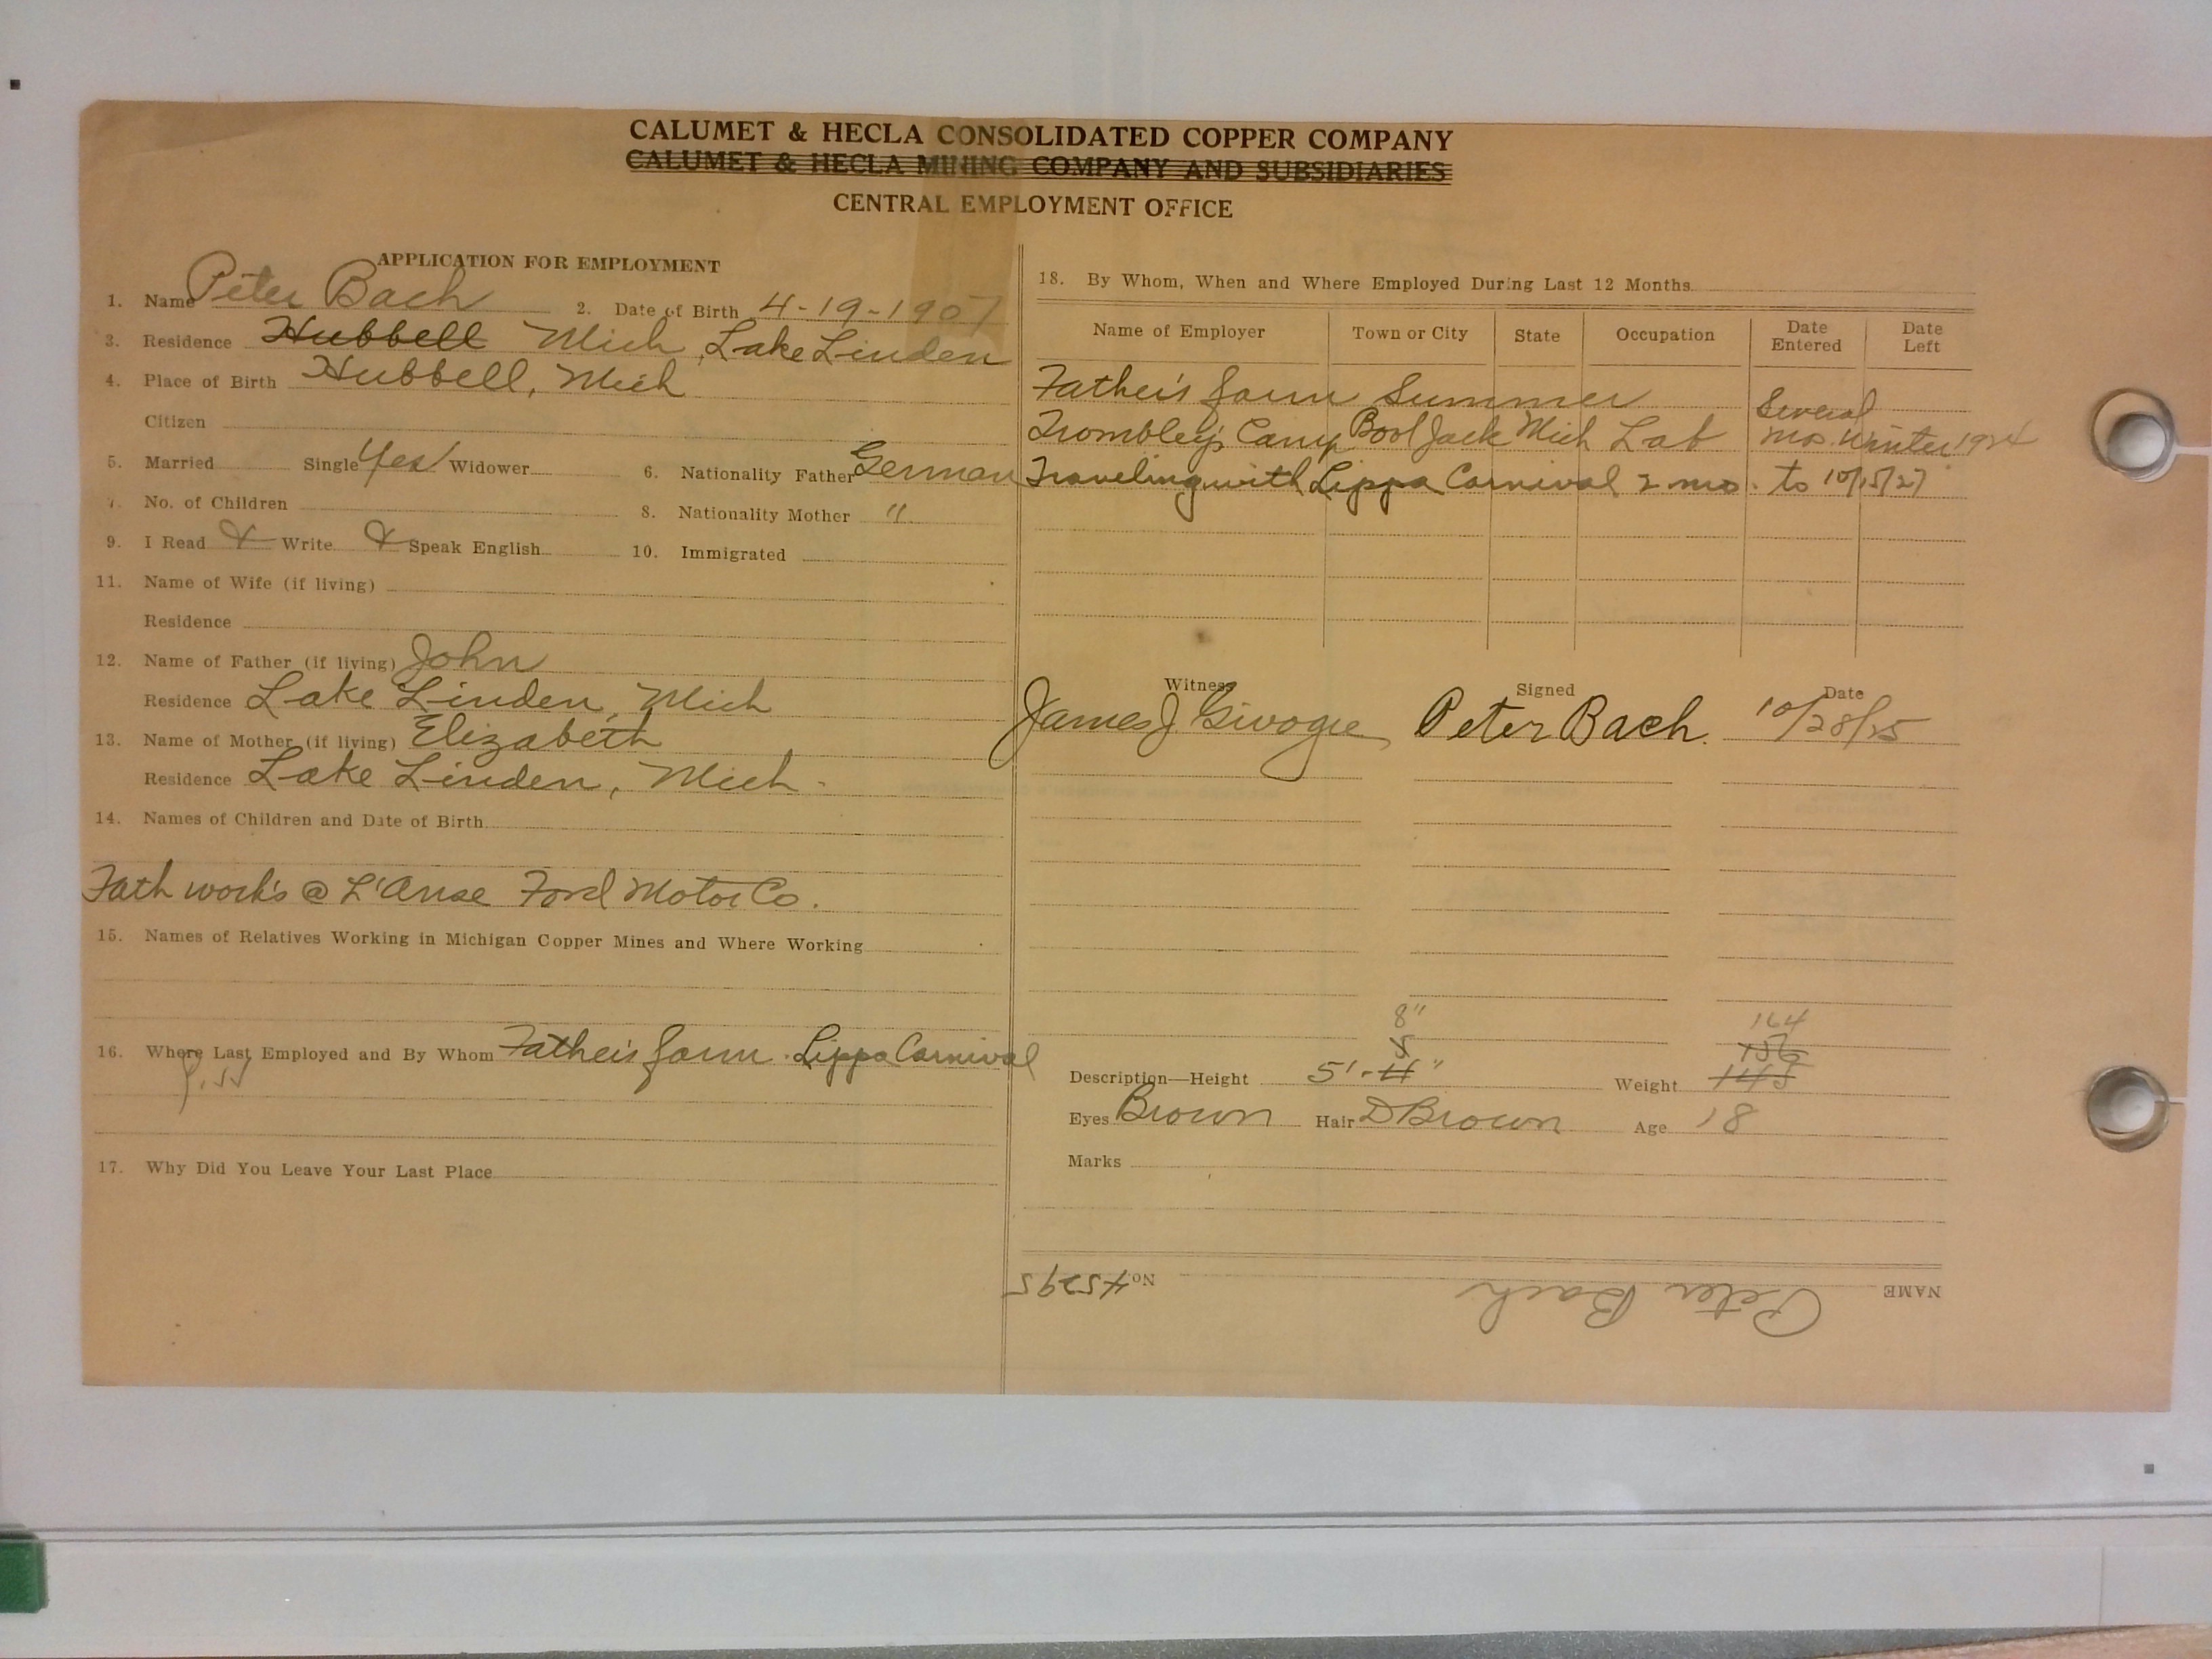 CALUMET & HECLA CONSOLIDATED COPPER COMPANY
CALUMET & HECLA MINING COMPANY AND SUBSIDIARIES
CENTRAL EMPLOYMENT OFFICE
APPLICATION FOR EMPLOYMENT
1. Name Peter Bach 2. Date of Birth 4-19-1907
3. Residence Hubbell Mich, Lake Linden
4. Place of Birth Hubbell, Mich
Citizen
5. Married Single Yes Widower 6. Nationality Father German
7. No. of Children 8. Nationality Mother "
9. I Read & Write & Speak English 10. Immigrated
11. Name of Wife (if living)
Residence
12. Name of Father (if living) John
Residence Lake Linden, Mich
13. Name of Mother (if living) Elizabeth
Residence Lake Linden, Mich.
14. Names of Children and Date of Birth
Fath work's @ L'Anse Ford Motor Co.
15. Names of Relatives Working in Michigan Copper Mines and Where Working
16. Where Last Employed and By Whom Father's farm. Lippa Carnival
17. Why Did You Leave Your Last Place
18. By Whom, When and Where Employed During Last 12 Months
Name of Employer Town or City State Occupation Date Entered Date Left
Father's farm Summer
Trombley's Camp Boot Jack Mich Lab Several mos. Winter 1924
Traveling with Lippa Carnival 2 mo. to 10/15/27
Witness Signed Date
James J. Peter Bach. 10/28/25
8" 164
5 156
Description—Height 5'-4" Weight 145
Eyes Brown Hair D Brown Age 18
Marks
NAME Peter Bach No 45295